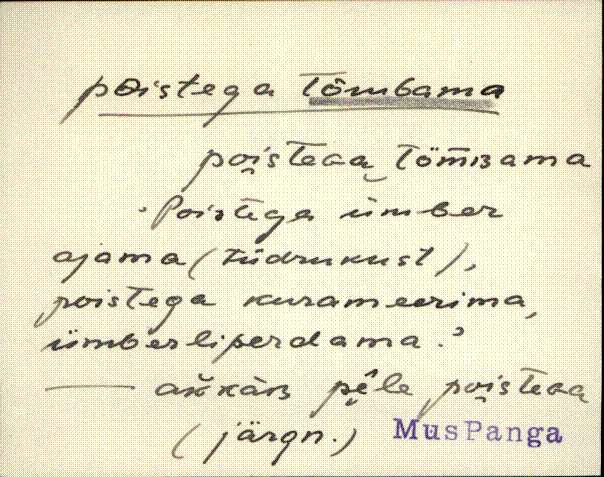 poistega tõmbama
poisteGa tömmʙama
'Poistega ümber
ajama (tüdrukust),
poistega kurameerima,
ümberliperdama.'
— aкkàʙ pê̮le poisteGa
(järgn.) MusPanga